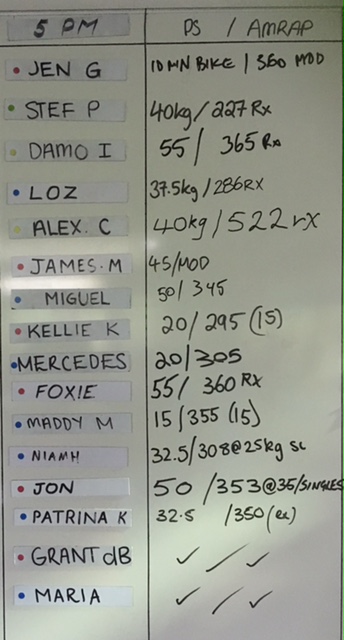 5 PM DS / AMRAP
JEN G 10 MN BIKE / 360 MOD
STEF P 40kg / 227 Rx
DAMO I 55 / 365 Rx
LOZ 37.5kg / 286RX
ALEX. C 40kg / 522 rx
JAMES. M 45/MOD
MIGUEL 50/ 345
KELLIE K 20 / 295 (15)
MERCEDES 20/305
FOXIE 55/ 360 RX
MADDY M 15 / 355 (15)
NIAMH 32.5/308@25kg SC
JON 50 /353@35/SINGLES
PATRINA K 32.5 /350 (Rx)
GRANT dB ✓ / ✓
MARIA ✓ / ✓